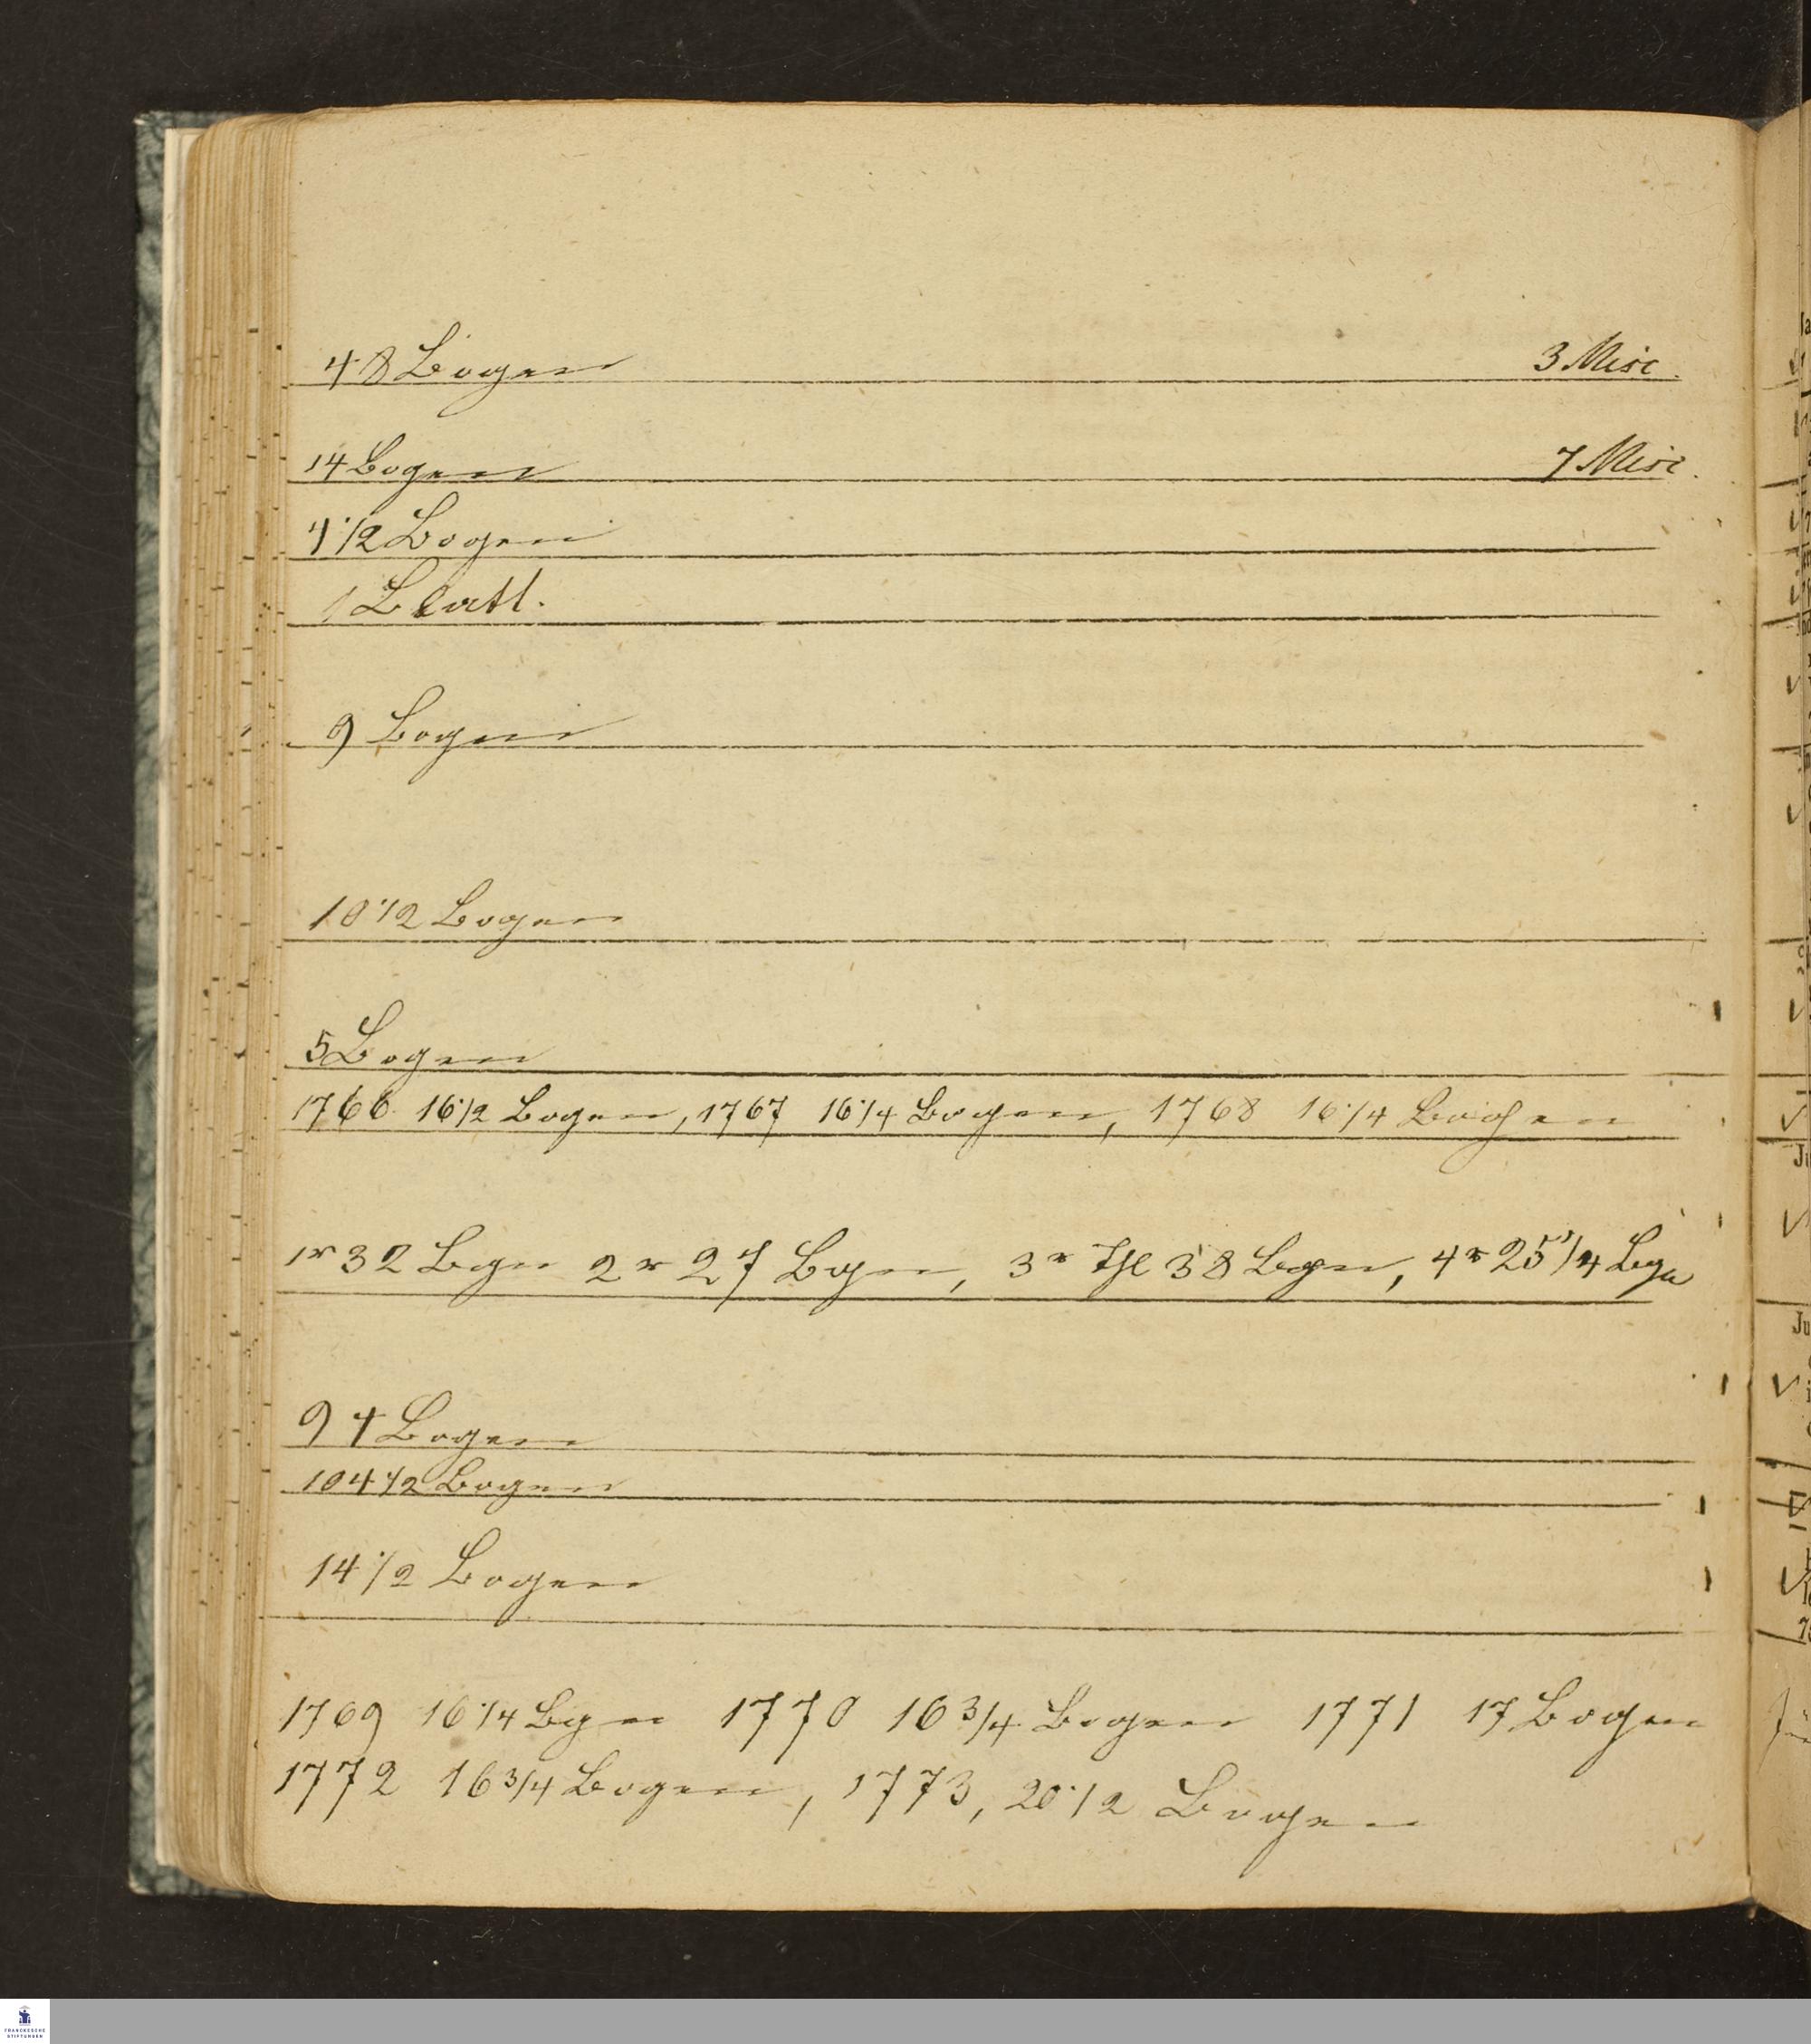 48 Bogen 3 Misc.
14 Bogen 7 Misc.
4 1/2 Bogen
1 Blatt.
9 Bogen
10 1/2 Bogen
5 Bogen
1766 16 1/2 Bogen, 1767 16 1/4 Bogen, 1768 16 1/4 Bogen
1r 32 Bgn 2r 27 Bgn, 3r Thl 38 Bgn, 4r 25 1/4 Bgn
94 Bogen
104 1/2 Bogen
14 1/2 Bogen
1769 16 1/4 Bgn 1770 16 3/4 Bogen 1771 17 Bogen
1772 16 3/4 Bogen, 1773, 20 1/2 Bogen
FRANCKESCHE
STIFTUNGEN